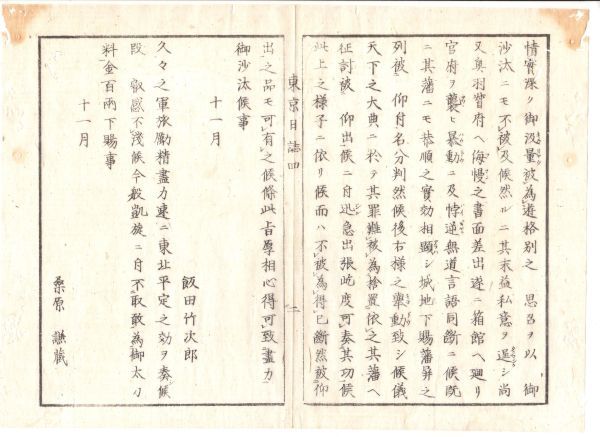 情實深ク御汲量被為遊格別之 思召ヲ以 御
沙汰ニモ不被及候然ルニ其末益私意ヲ逞シ尚
又奥羽督府ヘ侮慢之書面差出遂ニ箱館ヘ廻リ
官府ヲ襲ヒ暴動ニ及悖逆無道言語同斷ニ候既
ニ其藩ニモ恭順之實効相顯シ城地下賜藩屏之
列被 仰付名分判然候後右様之舉動致シ候儀
天下之大典ニ於テ其罪難被為捨置依之其藩ヘ
征討被 仰出候ニ付迅急出張屹度可奏其功候
此上之様子ニ依リ候而ハ不被為得已断然被仰
東京日誌四
二
出之品モ可有之候條此旨厚相心得可致盡力
御沙汰候事
十一月
飯田竹次郎
久々之軍旅勵精盡力速ニ東北平定之効ヲ奏候
段 叡感不淺候今般凱旋ニ付不取敢為御太刀
料金百兩下賜事
十一月
桑原 譲藏